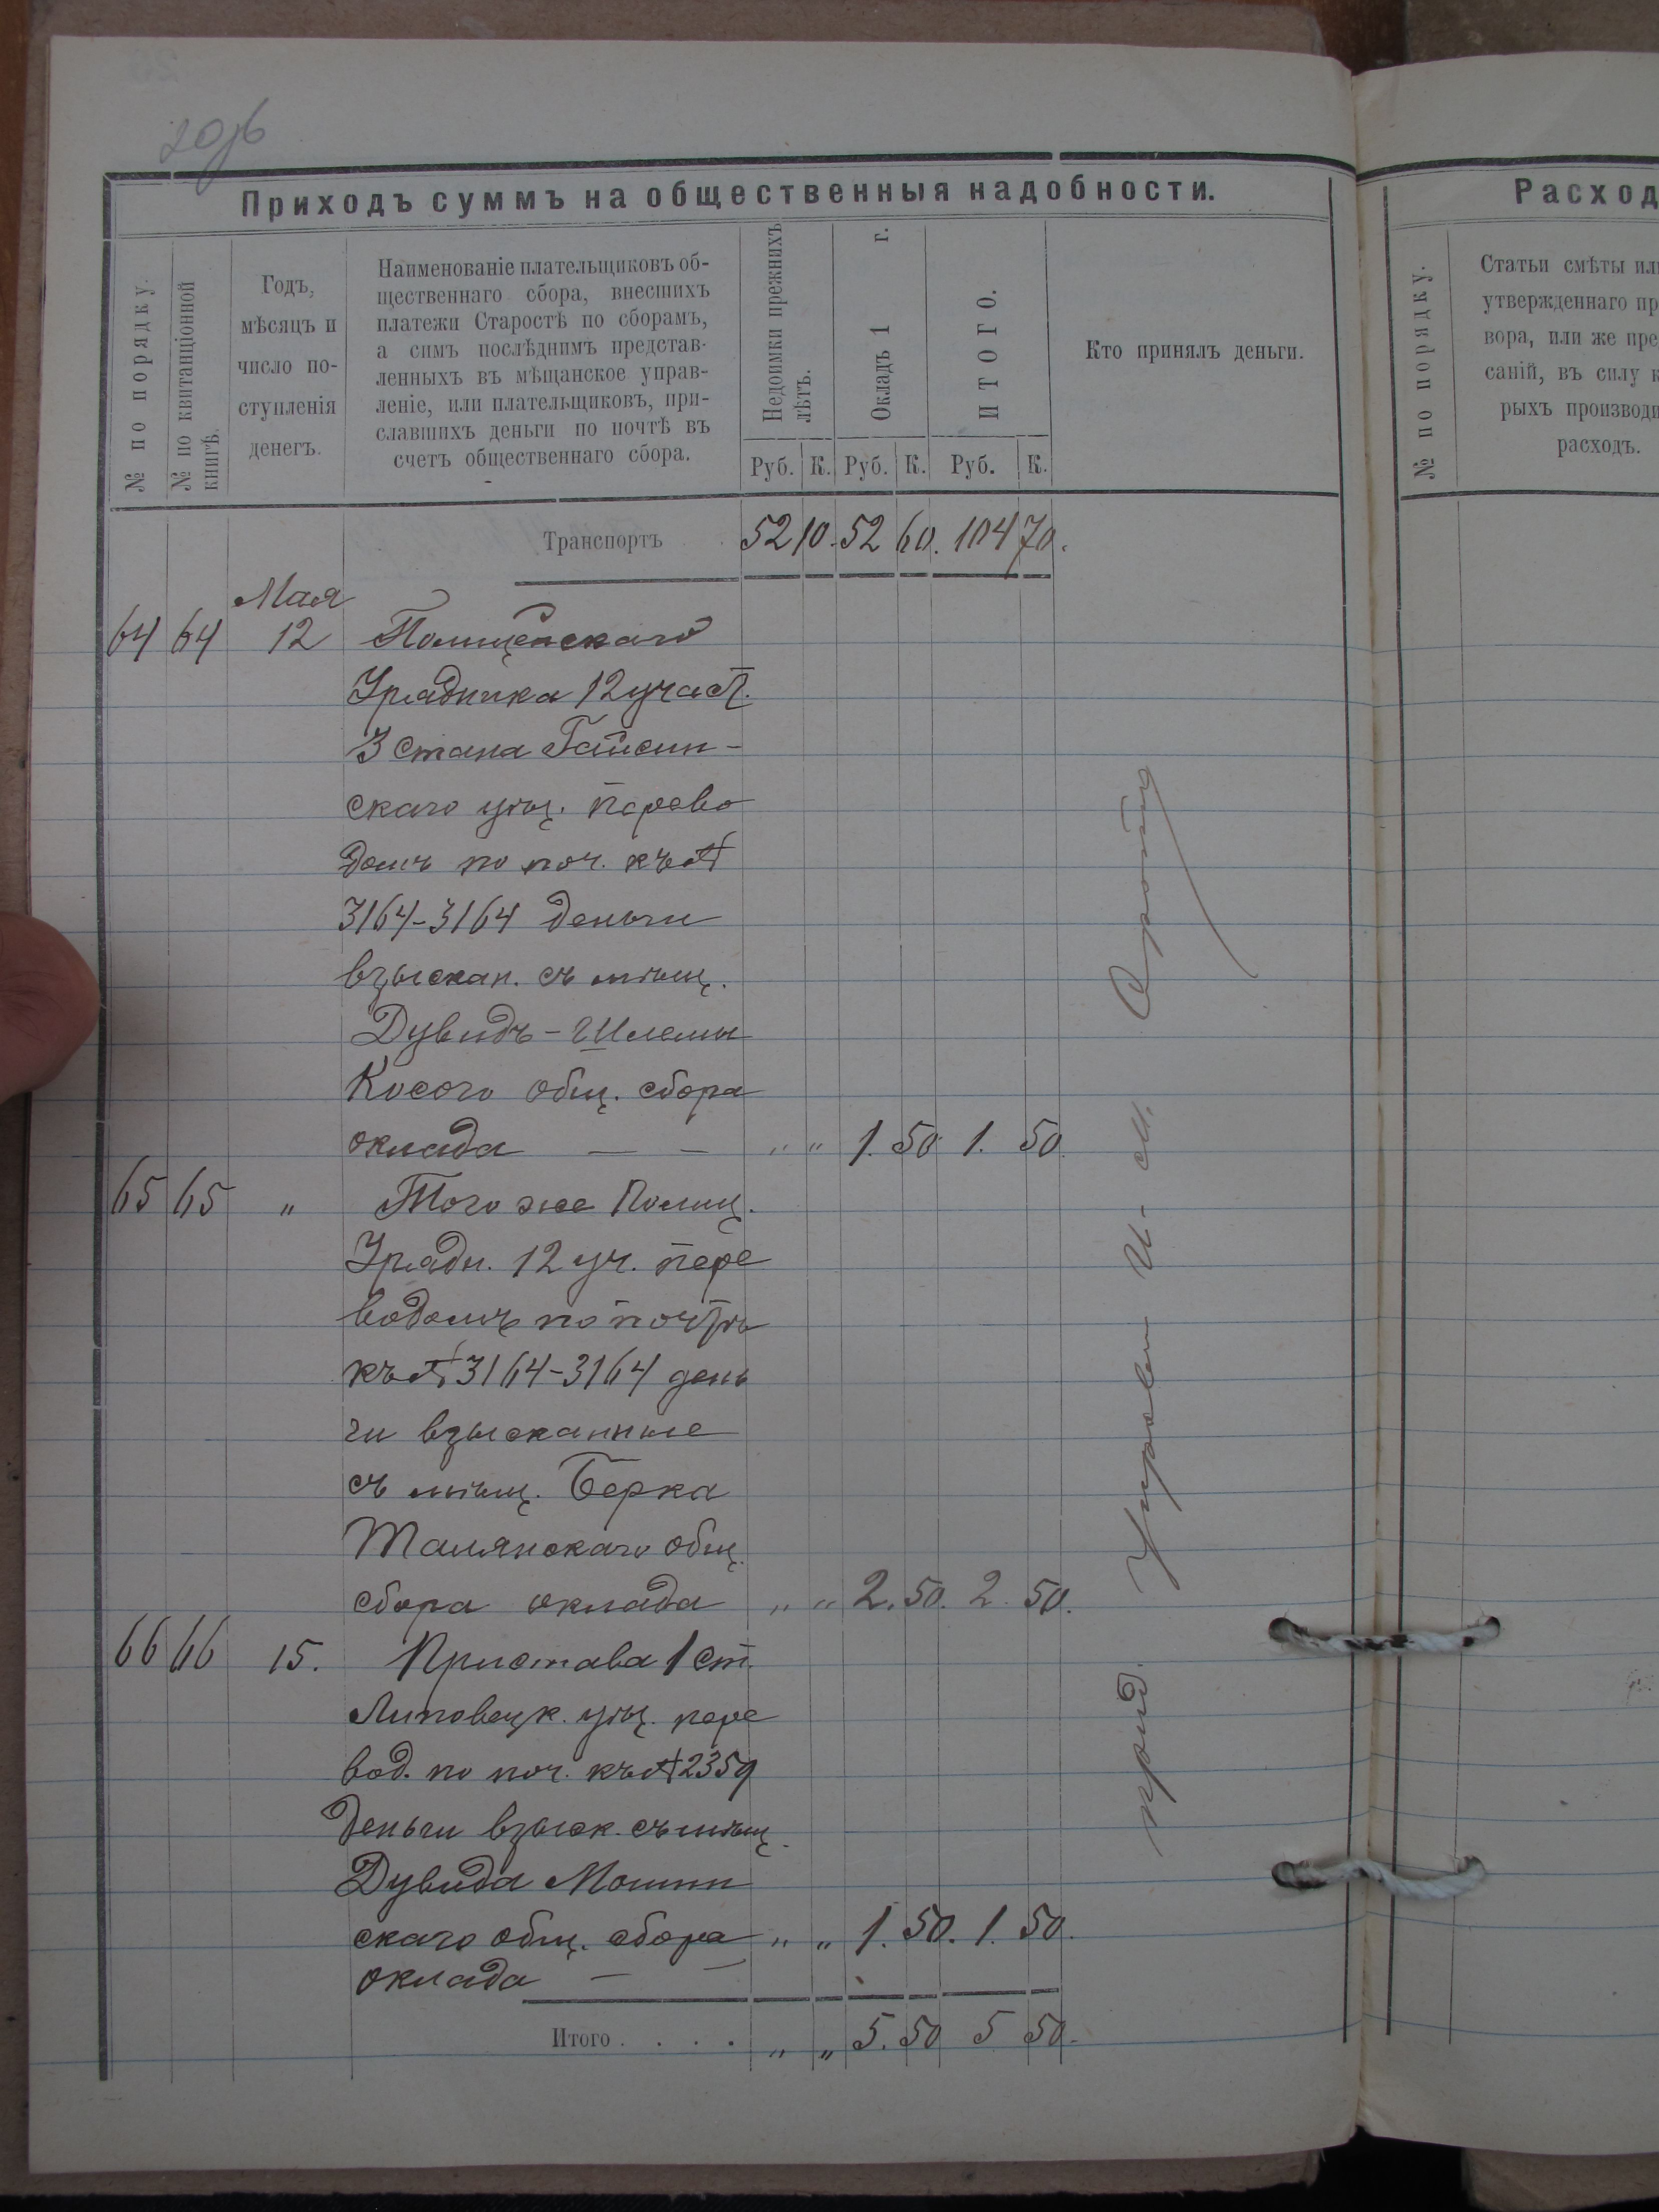 20об
Приходъ суммъ на общественныя надобности.
№ по порядку.
№ по квитанціонной
книгѣ.
Годъ,
мѣсяцъ и
число по-
ступленія
денегъ.
Наименованіе плательщиковъ об-
щественнаго сбора, внесшихъ
платежи Старостѣ по сборамъ,
а симъ послѣднимъ представ-
ленныхъ въ мѣщанское управ-
леніе, или плательщиковъ, при-
славшихъ деньги по почтѣ въ
счетъ общественнаго сбора.
Недоимки прежнихъ
лѣтъ.
Окладъ 1 г.
ИТОГО.
Кто принялъ деньги.
Руб. К. Руб. К. Руб. К.
Транспортъ 52 10. 52 60. 104 70.
Мая
64 64 12 Полицейскаго
Урядника 12 участ.
3 стана Гайсин-
скаго уѣз. перево
домъ по поч. къ №
3164-3164 деньги
взыскан. съ мѣщ.
Дувидъ-Шлемы
Косого общ. сбора
оклада — — „ „ 1. 50. 1. 50.
65 65 „ Того же Полиц.
Урядн. 12 уч. пере
водомъ по почтѣ
къ № 3164-3164 день
ги взысканные
съ мѣщ. Берка
Талянскаго общ.
сбора оклада „ „ 2. 50. 2. 50.
66 66 15. Пристава 1 ст.
Липовецк. уѣз. пере
вод. по поч. къ № 2359
деньги взыск. съ мѣщ.
Дувида Мошин
скаго общ. сбора „ „ 1. 50. 1. 50.
оклада — —
Итого . . . . „ „ 5. 50 5 50.
Расход
№ по порядку.
Статьи смѣты ил
утвержденнаго пр
вора, или же пре
саній, въ силу к
рыхъ производи
расходъ.